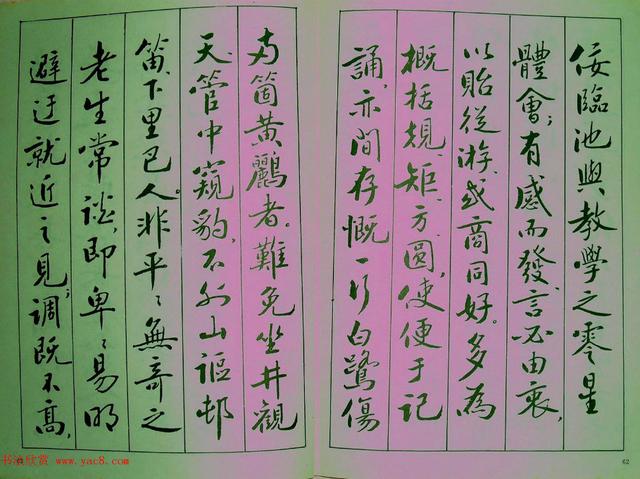 佞臨池與教學之零星
體會；有感而發，言必由衷，
以貽從游，或商同好。多為
概括規矩方圓，使便于記
誦，亦間存慨一行白鷺傷
兩箇黃鸝者。難免坐井觀
天，管中窺豹，石外山謳邨
笛，下里巴人。非平平無奇之
老生常談，即卑卑易明
避迂就近之見，調既不高，
书法欣赏 www.yac8.com
62